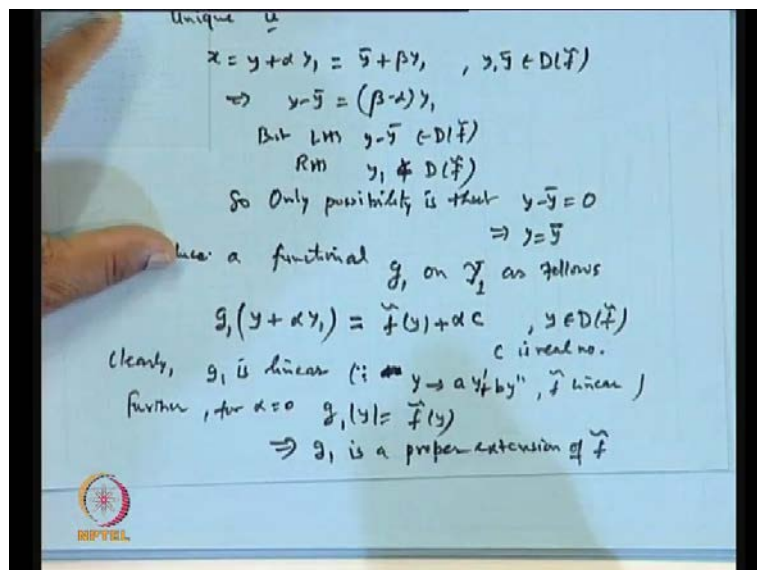 Unique
x = y + α y₁ = ȳ + β y₁ , y, ȳ ∈ D(f̃)
⇒ y - ȳ = (β - α) y₁
But LHS y - ȳ ∈ D(f̃)
RHS y₁ ∉ D(f̃)
So Only possibility is that y - ȳ = 0
⇒ y = ȳ
a functional g₁ on Y₁ as follows
g₁(y + α y₁) = f̃(y) + α c , y ∈ D(f̃)
c is real no.
Clearly, g₁ is linear (∵ y → a y' + b y'', f̃ linear)
Further, for α = 0 g₁(y) = f̃(y)
⇒ g₁ is a proper extension of f̃
NPTEL